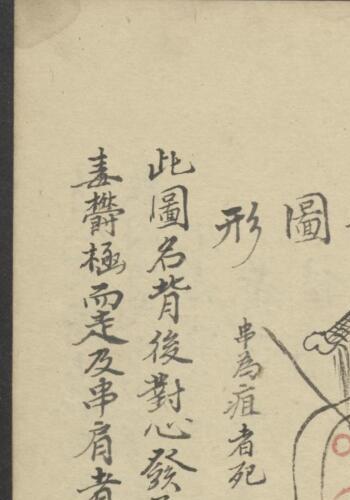 圖
形
串為疽者死
此圖名背後對心發
毒欝極而走及串肩者